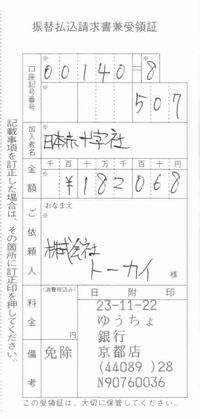 振替払込請求書兼受領証
口座記号番号
00140-8
507
加入者名
日本赤十字社
金額
千 百 十 万 千 百 十 円
¥182068
ご依頼人
おなまえ
株式会社
トーカイ
様
料金
(消費税込み)
円
備考
免除
日附印
23-11-22
ゆうちょ
銀行
京都店
(44089 )28
N90760036
記載事項を訂正した場合は、その箇所に訂正印を押してください。
この受領証は、大切に保管してください。